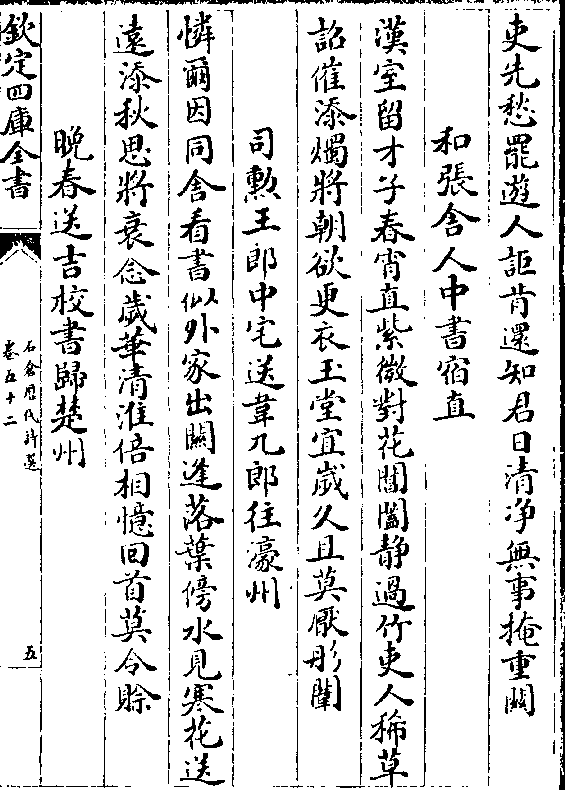 吏先愁罷遊人詎肯還知君日清净無事掩重關
和張舍人中書宿直
漢室留才子春宵直紫微對花閶闔静過竹吏人稀草
詔催添燭將朝欲更衣玉堂宜歲久且莫厭彤闈
司勲王郎中宅送韋九郎往濠州
憐爾因同舍看書似外家出關逢落葉傍水見寒花送
遠添秋思將衰念歲華清淮倍相憶回首莫令賒
晩春送吉校書歸楚州
欽定四庫全書
石倉歴代詩選
卷五十二
五